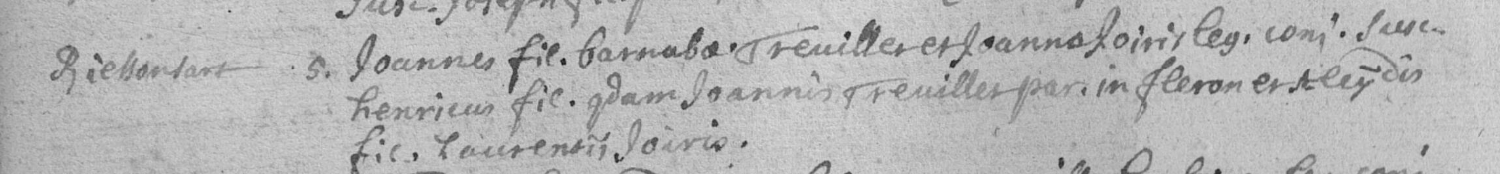 Susc. Joseph
Riessonsart 5. Joannes fil. barnabæ Treuiller et Joanna Joiris leg. conj. Susc.
henricus fil. qdam Joannis Treuiller par. in fleron et Aleÿdis
fil. Laurentii Joiris.